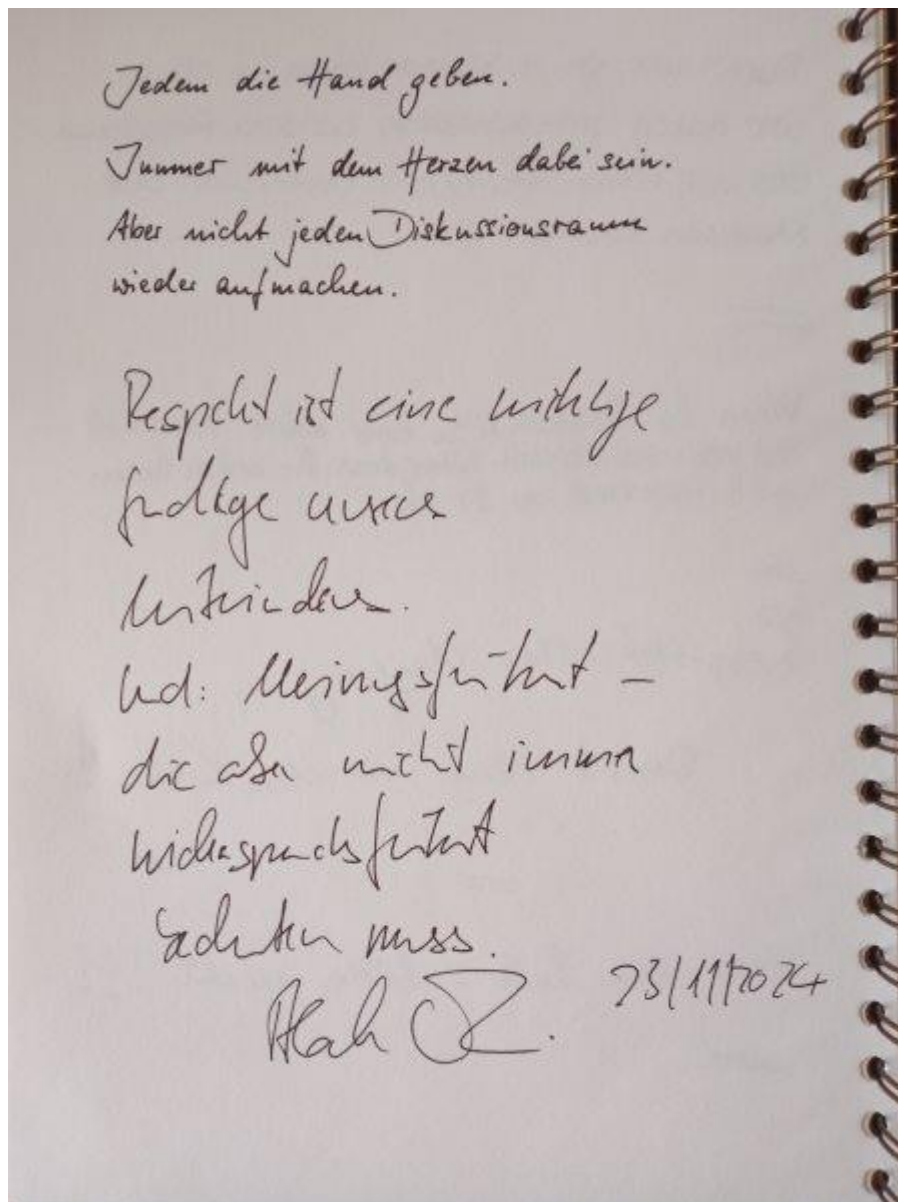 Jedem die Hand geben.
Immer mit dem Herzen dabei sein.
Aber nicht jeden Diskussionsraum
wieder aufmachen.
Respekt ist eine wichtige
Grundlage unseres
Miteinanders.
Und: Meinungsfreiheit –
die aber nicht immer
Widerspruchsfreiheit
bedeuten muss.
23/11/2024